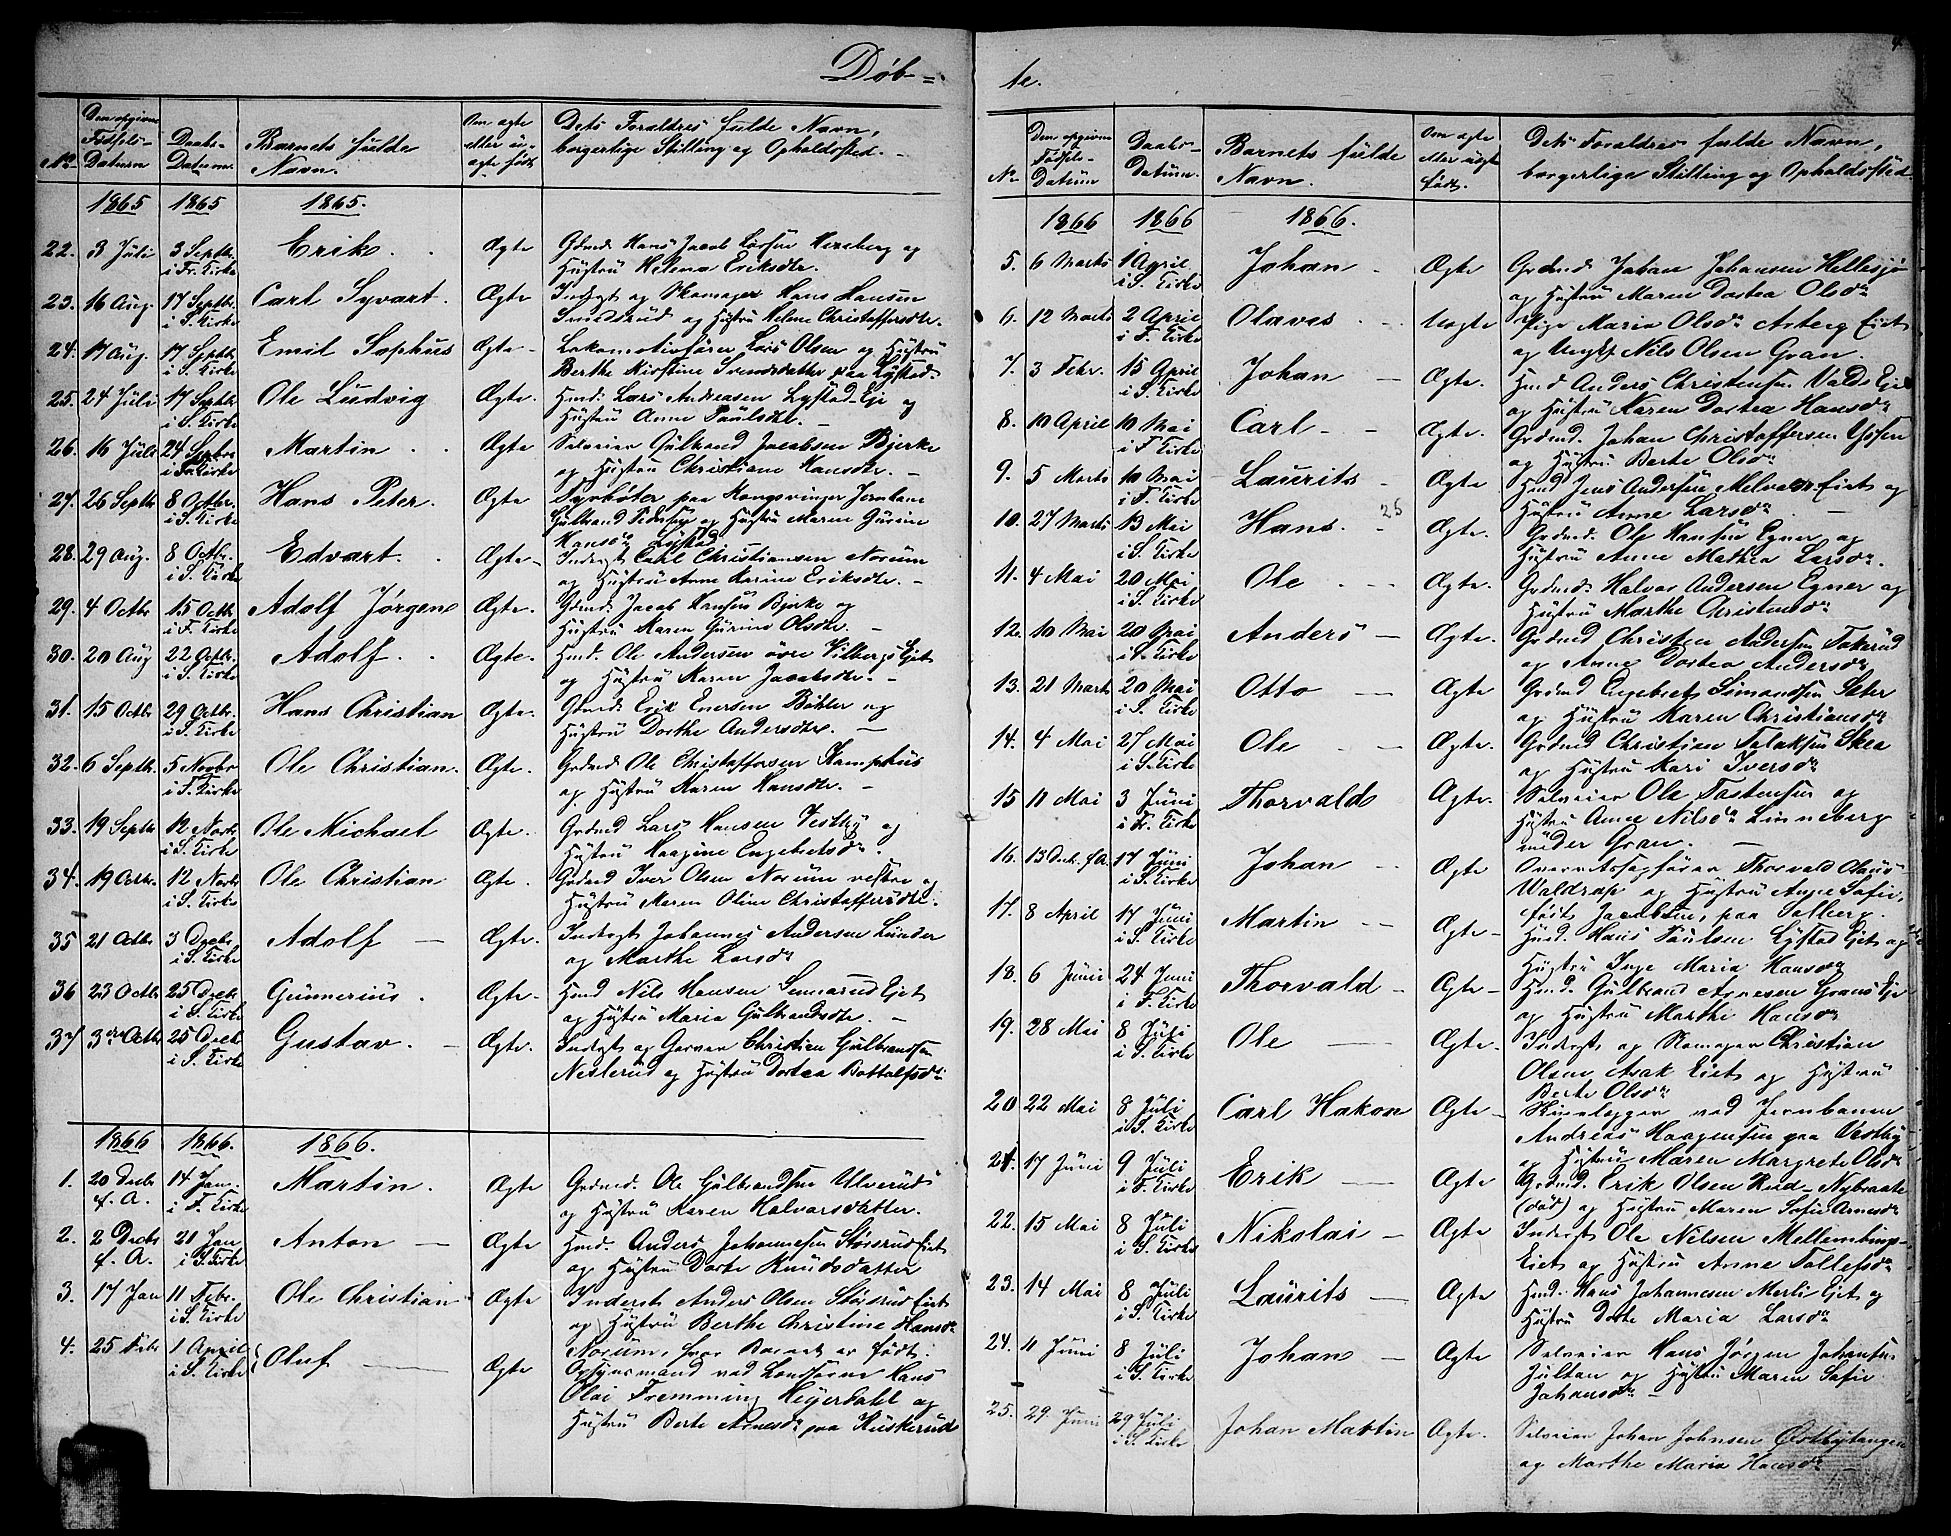 Døb=
No. Den opgivne Fødsels-Datum Daabs-Datum Barnets fulde Navn. Om ægte eller uægte født Dets Forældres fulde Navn, borgerlige Stilling og Opholdssted.
1865 1865 1865.
22. 3 Juli 3 Septbr. i Fr. Kirke Erik Ægte Grdmd. Hans Jacob Larsen Herseberg og
Hustru Helene Eriksdtr.
23. 16 Aug. 17 Septbr. i S. Kirke Carl Syvart. Ægte. Inderst og Skomager Hans Hansen
og Hustru Helene Christoffersdtr.
24. 17 Aug. 17 Septbr. i S. Kirke Emil Sophus Ægte Lokomotivfører Lars Olsen og Hustru
Berthe Kirstine Svendsdatter paa Lystad.
25. 24 Juli 17 Septbr. i S. Kirke Ole Ludvig Ægte. Husmd. Lars Andreasen Lystad-Eje og
Hustru Anne Paulsdtr.
26. 16 Juli 24 Septbr. i Fr. Kirke Martin Ægte Selveier Gulbrand Jacobsen Bjerke
og Hustru Christiane Hansdtr.
27. 26 Septbr 8 Octbr. i S. Kirke Hans Peter. Ægte Fyrbøter paa Kongsvinger Jernbane
Gulbrand og Hustru Maren Gurine
Hansdtr. Lystad
28. 29 Aug. 8 Octbr. i S. Kirke Edvart. Ægte Inderst Carl Christiansen Norum
og Hustru Anne Karine Eriksdtr.
29. 4 Octbr 15 Octbr. i F. Kirke Adolf Jørgen Ægte. Grdmd. Jacob Hansen Bjerke og
Hustru Karen Gurine Olsdtr.
30. 20 Aug 22 Octbr. i S. Kirke Adolf. Ægte. Husmd. Ole Andersen øvre Vilbergs Eiet
og Hustru Karen Jacobsdtr.
31. 15 Octbr 29 Octbr. i S. Kirke Hans Christian Ægte. Grdmd. Erik Enersen Bøhler og
Hustru Dorthe Andersdtr.
32. 6 Septbr. 5 Novbr i F. Kirke Ole Christian. Ægte. Grdmd. Ole Christoffersen Kamphus
og Hustru Karen Hansdtr.
33. 19 Septbr 12 Novbr. i S. Kirke Ole Michael Ægte. Grdmd Lars Hansen Vestby og
Hustru Haagine Engebretsdr.
34. 19 Octbr. 12 Novbr. i S. Kirke Ole Christian Ægte. Grdmd Iver Olsen Norum vestre og
Hustru Maren Oline Christoffersdtr.
35 21 Octbr 3 Decbr. i S. Kirke Adolf Ægte. Inderst Johannes Andersen Lunder
og Marthe Larsdr
36 23 Octbr 25 Decbr i S. Kirke Gunnerius. Ægte. Husmd Nils Hansen Eiet
og Hustru Maria Gulbrandsdtr.
37 3die Octbr 25 Decbr. i S. Kirke Gustav. Ægte. Inderst og Garver Christian Gulbrandsen
Neslerud og Hustru Dortea Bottolfsdr.
1866 1866. 1866.
1. 20 Decbr f. A. 14 Jan. i F. Kirke Martin. Ægte Grdmd. Ole Gulbrandsen Ulverud
og Hustru Karen Halvorsdatter.
2. 2 Decbr f. A. 21 Jan i S. Kirke Anton Ægte Husmd. Anders Johannesen Størsrud Eiet
og Hustru Dorte Knudsdatter
3. 17 Jan 11 Febr. i S. Kirke Ole Christian Ægte Inderst Anders Olsen Størsrud Eiet
og Hustru Berthe Christine Hansdr
Norum, hvor Barnet er født.
4. 25 Febr 1 April i S. Kirke Oluf Ægte Opsynsmand ved Landsørne Hans
Olai Fremming Heyerdahl og
Hustru Berte Arnesdr paa Huskerud
te.
No Den opgivne Fødsels-Datum Daabs-Datum. Barnets fulde Navn. Om ægte eller uægte født. Dets Forældres fulde Navn, borgerlige Stilling og Opholdssted.
1866 1866 1866.
5. 6 Marts 1 April i S. Kirke Johan Ægte Grdmd. Johan Johansen Hellesjø
og Hustru Maren Dortea Olsdr
6. 12 Marts 2 April i F. Kirke Olaves Uægte Pige Maria Olsdr Asberg Eiet
og Ungkl Nils Olsen Gran.
7. 3 Febr. 15 April i S. Kirke Johan Ægte. Husmd Anders Christensen Volds Eje
og Hustru Karen Dortea Hansdr
8. 10 April 10 Mai i F. Kirke Carl Ægte. Grdmd. Johan Christoffersen
og Hustru Berte Olsdr
9. 5 Marts 10 Mai i F. Kirke Laurits Ægte Husmd Jens Andersen Melvold Eiet og
Hustru Anne Larsdr
10. 27 Marts 13 Mai i S. Kirke Hans. 25 Ægte. Grdmd. Ole Hansen Egner og
Hustru Anne Mathea Larsdr.
11. 4 Mai 20 Mai i S. Kirke Ole Ægte. Grdmd. Halvor Andersen Egner og
Hustru Marthe
12. 10 Mai 20 Mai i S. Kirke Anders Ægte. Grdmd Christen Andersen Fakerud
og Anne Dortea Andersdr
13. 21 Marts 20 Mai i S. Kirke Otto Ægte Grdmd Engebret Simensen Sæter
og Hustru Karen Christiansdr
14. 4 Mai 27 Mai i S. Kirke Ole Ægte. Grdmd Christian Falaksen Skea
og Hustru Kari Iversdr
15 11 Mai 3 Juni i Fr. Kirke Thorvald Ægte. Selveier Ole Tostensen og
Hustru Anne Nilsdr Linneberg
under Gran.
16. 13 Decb. f A. 17 Juni i S. Kirke Johan Ægte Overretssagfører Thorvald Olaus
Waldrap og Hustru Anne Sofie,
født Jacobsen, paa Solberg.
17. 8 April 17 Juni i S. Kirke Martin Ægte Husmd. Hans Paulsen Lystad Eiet og
Hustru Inge Maria Hansdr
18. 6 Juni 24 Juni i F. Kirke Thorvald Ægte Husmd. Gulbrand Arnesen Grans Eje
og Hustru Marthe Hansdr
19. 28 Mai 8 Juli i S. Kirke Ole Ægte Inderst og Skomager Christian
Olsen Arak Eiet og Hustru
Berte Olsdr
20 22 Mai 8 Juli i S. Kirke Carl Hakon Ægte Skinnelægger ved Jernbanen
Andreas Haagensen paa Vestby
og Hustru Maren Margrete Olsdr
21. 17 Juni 9 Juli i F. Kirke Erik Ægte Grdmd. Erik Olsen Rud-Nybraate
(død) og Hustru Maren Sofie Arnesdr
22. 15 Mai 8 Juli i S. Kirke Nikolai Ægte Inderst Ole Nilsen Mellembyes-
Eiet og Hustru Anne Tollefsdr
23. 14 Mai 8 Juli i S. Kirke Laurits Ægte Husmd. Hans Johannesen Merli Ejet og
Hustru Dorte Maria Larsdr
24. 11 Juni 8 Juli i S. Kirke Johan Ægte Selveier Hans Jørgen Johansen
Jultan og Hustru Maren Sofie
Johansdr
25. 29 Juni 29 Juli i S. Kirke Johan Martin Ægte. Selveier Johan Johnsen Østbytangen
og Marthe Maria Hansdr